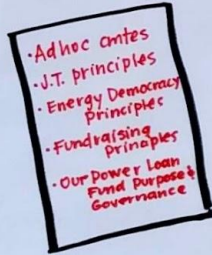 ·Adhoc cmtes
·J.T. principles
·Energy Democracy
Principles
·Fundraising
Prinaples
·Our Power Loan
Fund Purpose &
Governance